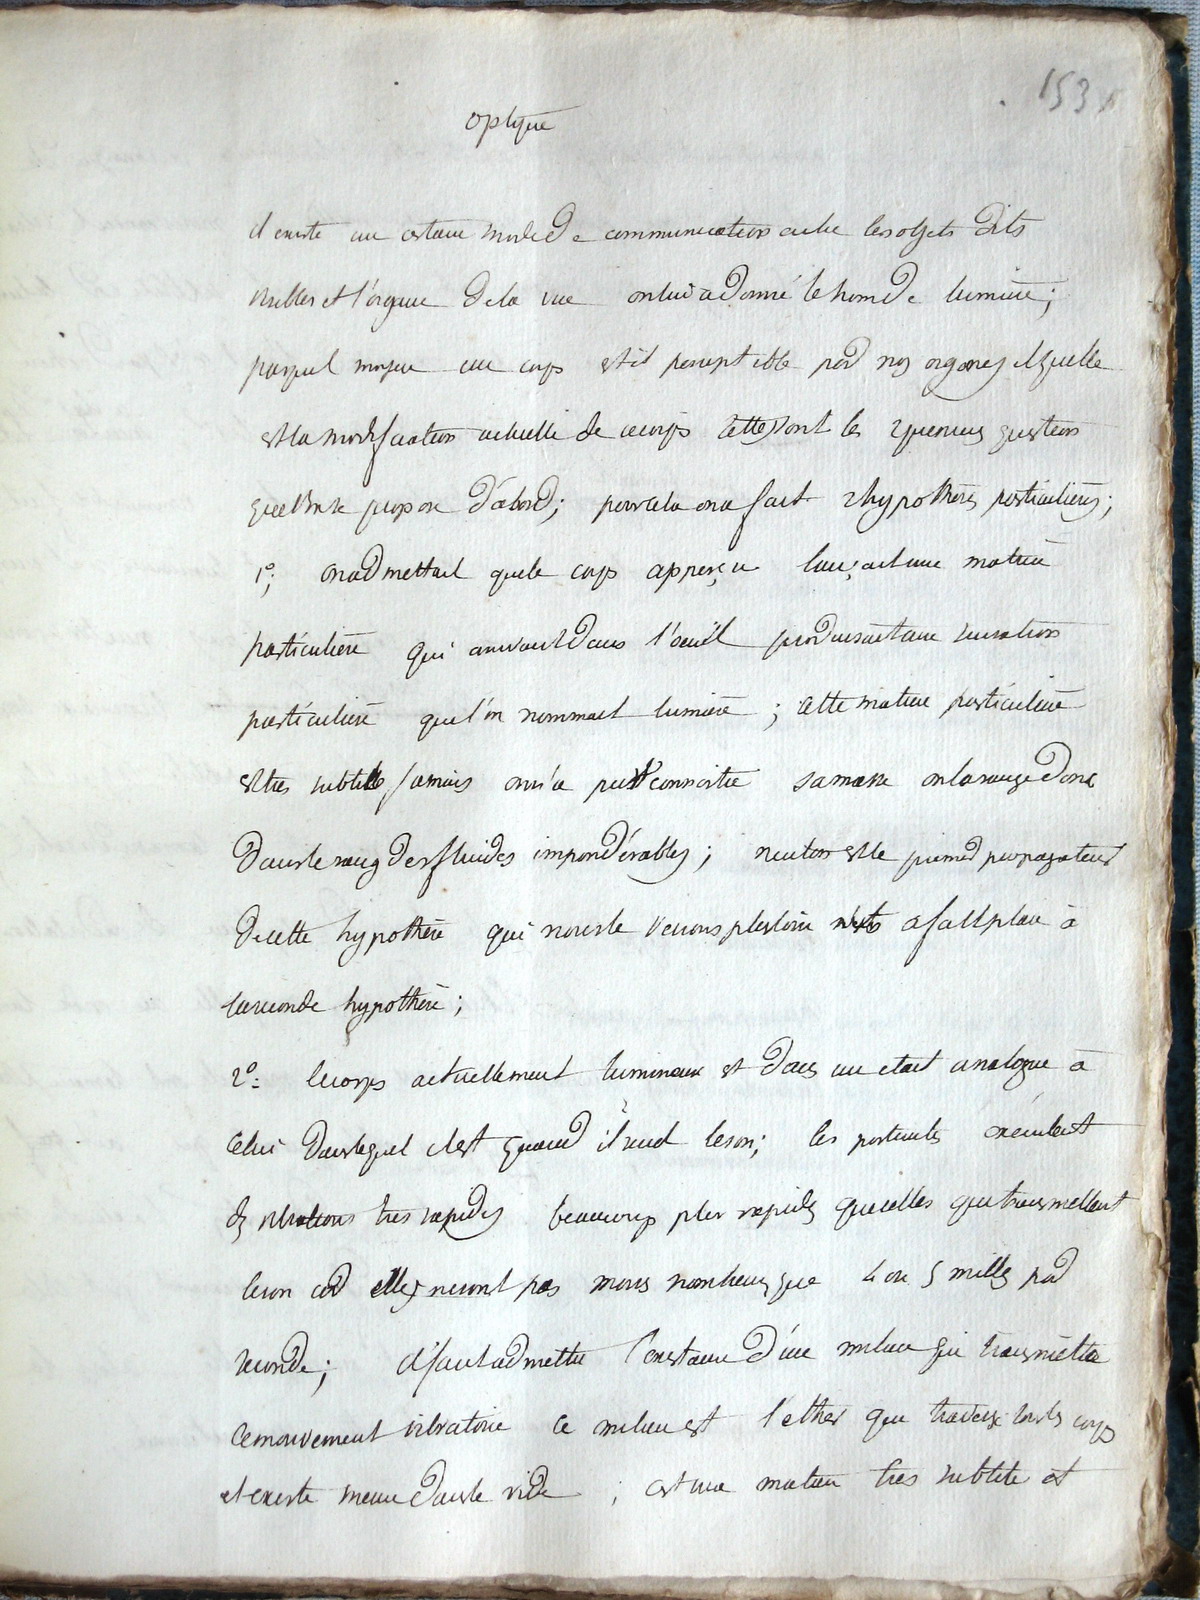 153
optique
il existe un certain mode de communication entre les objets dits
visibles et l'organe de la vue on lui a donné le nom de lumière;
par quel moyen un corps est il perceptible par nos organes et quelle
est la modification actuelle de ce corps telles sont les 2 premieres question
que l'on se propose d'abord; pour cela on a fait 2 hypothèses particulières;
1º; on admettait que le corps apperçu lançait une matière
particulière qui arrivant dans l'oeuil produisait une sensation
particulière que l'on nommait lumière; cette matiere particulière
est tres subtile jamais on n'a pu connoitre sa masse on la range donc
dans le rang des fluides impondérables; neuton est le premier propagateur
de cette hypothèse qui nous le verrons plus loin a fait place à
la seconde hypothèse;
2º: le corps actuellement lumineux est dans un etat analogue à
celui dans lequel il est quand il rend le son; les particules exécutent
des vibrations tres rapides beaucoup plus rapides que celles qui transmettent
le son car elles ne sont pas moins nombreuses que 4 ou 5 milles par
seconde; il faut admettre l'existance d'un milieu qui transmette
ce mouvement vibratoire ce milieu est l'ether qui traverse tous les corps
et existe meme dans le vide; c'est une matiere tres subtile et